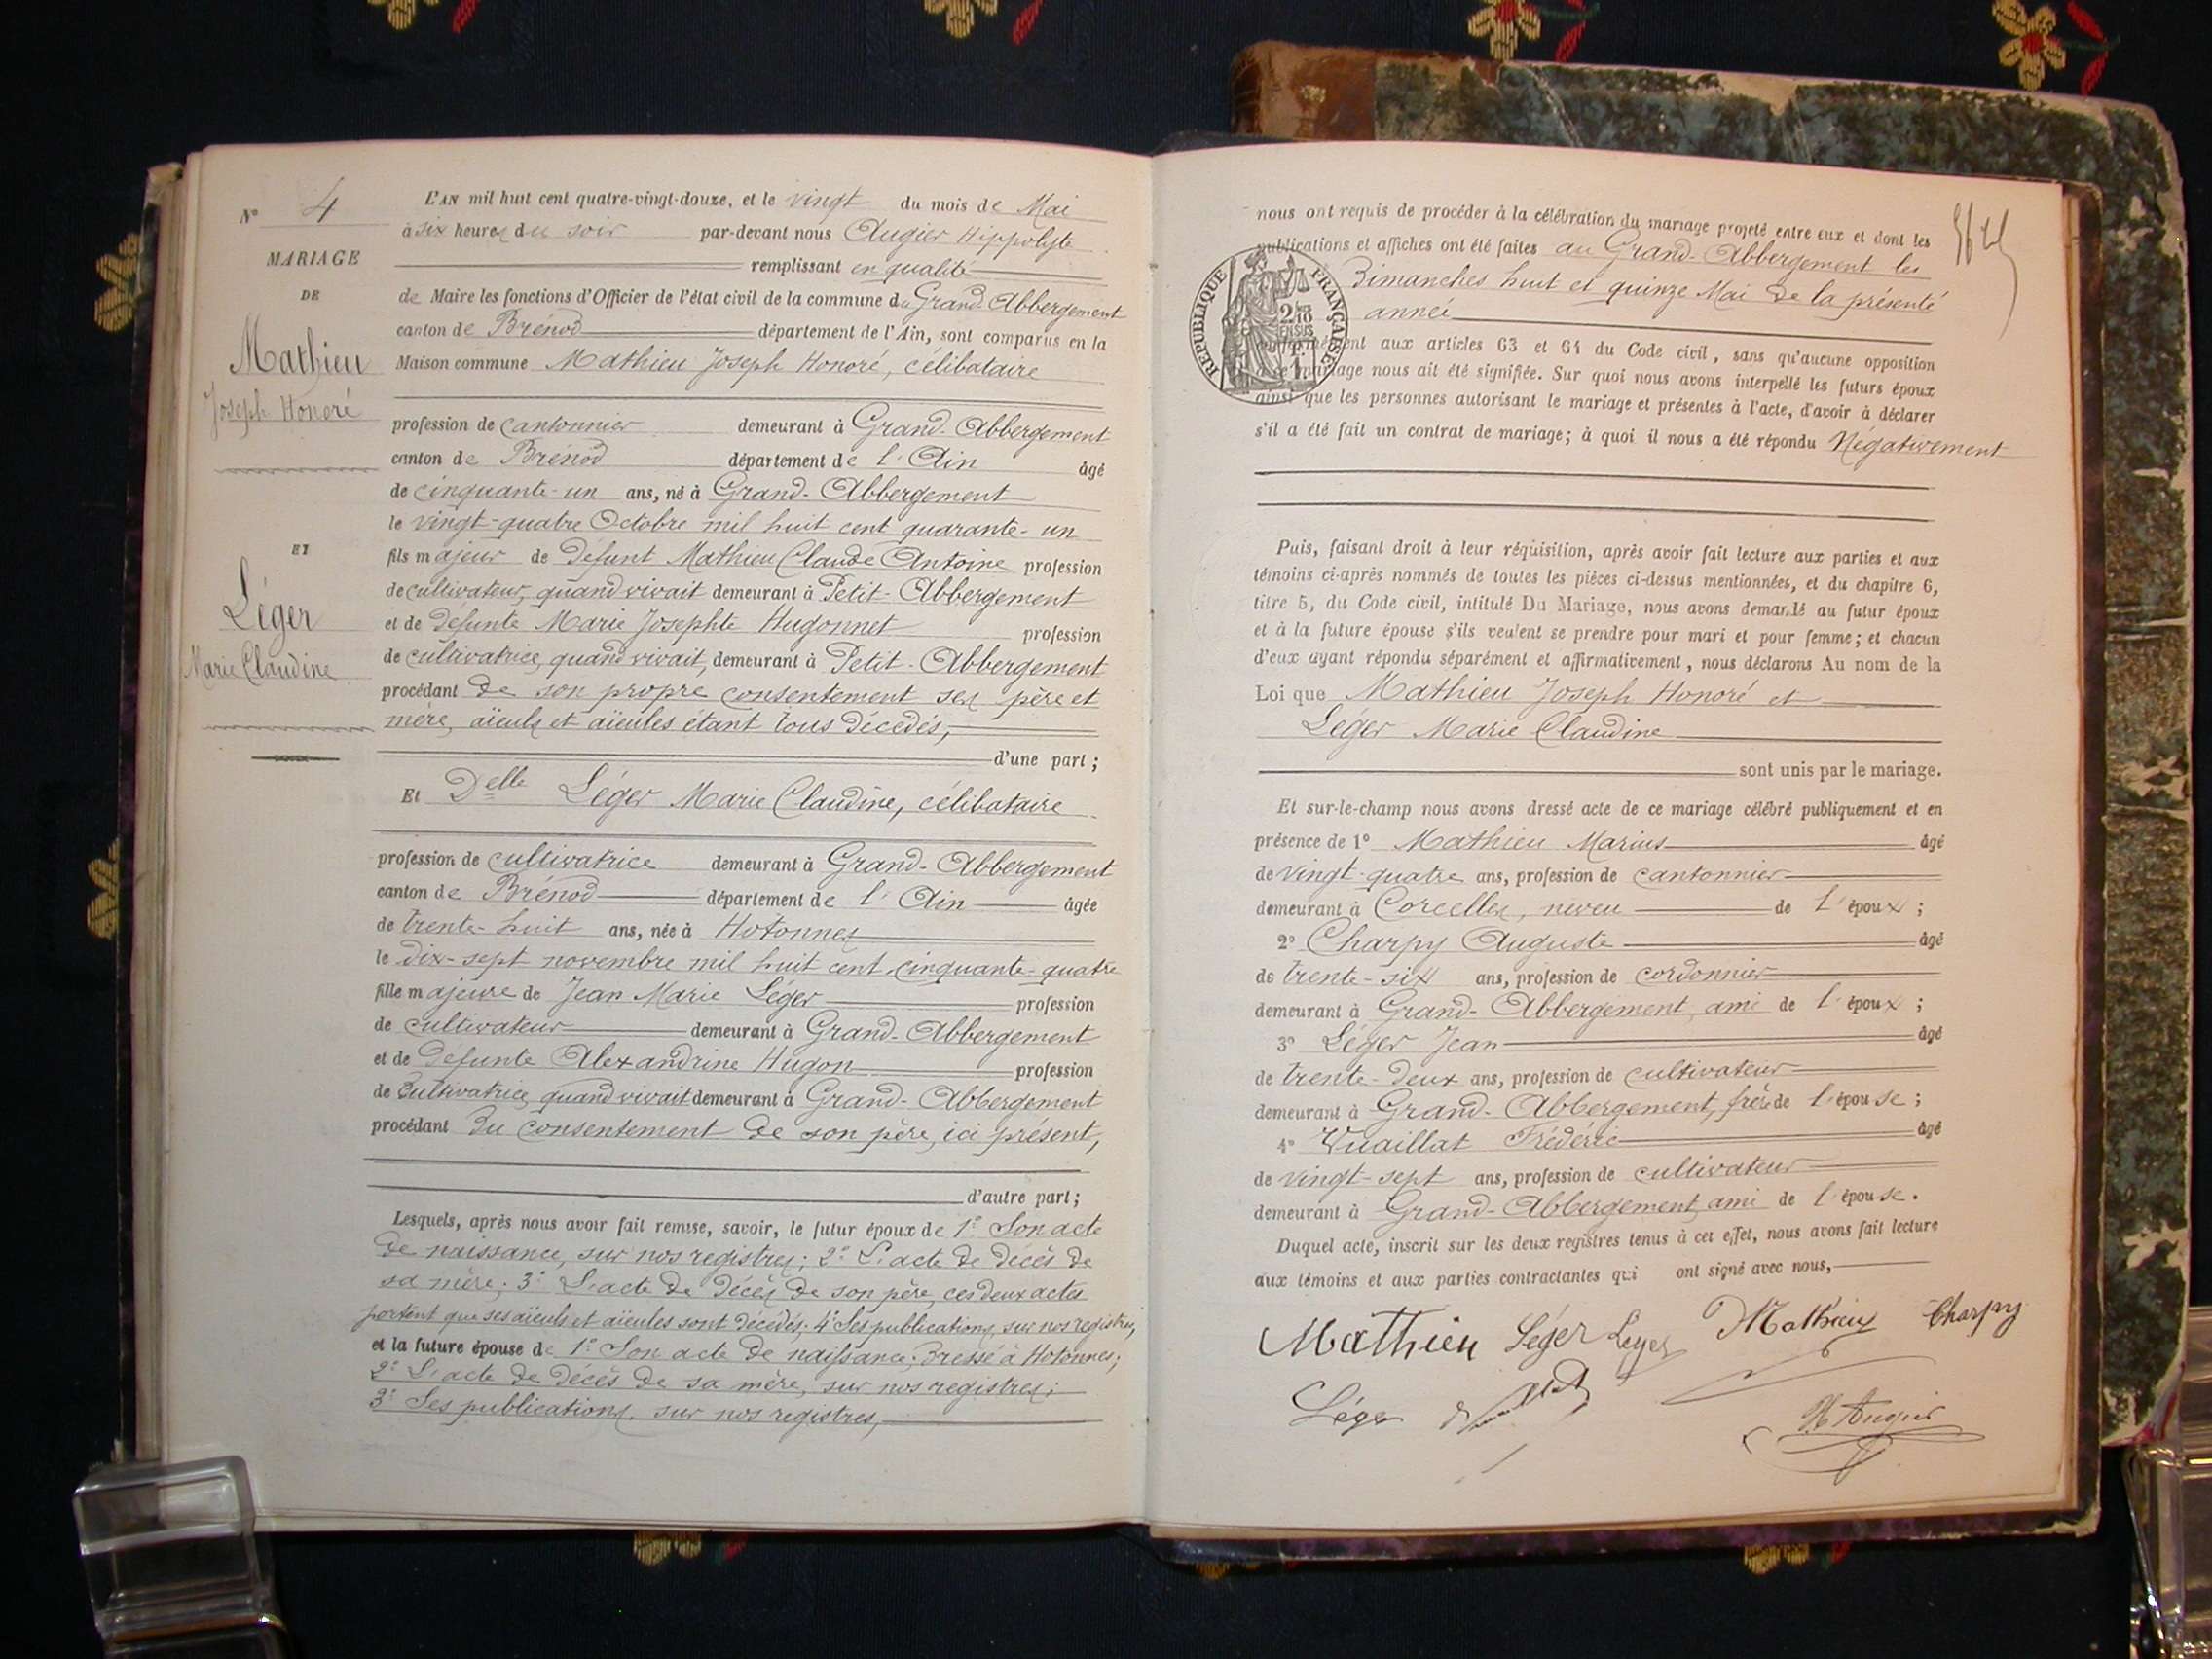 N° 4
MARIAGE
DE
Mathieu
Joseph Honoré
ET
Léger
Marie Claudine
L'AN mil huit cent quatre-vingt-douze, et le vingt du mois de Mai
à six heures du soir par-devant nous Augier Hippolyte
remplissant en qualité
de Maire les fonctions d'Officier de l'état civil de la commune du Grand-Abbergement
canton de Brénod département de l'Ain, sont comparus en la
Maison commune Mathieu Joseph Honoré, célibataire
profession de cantonnier demeurant à Grand-Abbergement
canton de Brénod département de l'Ain âgé
de cinquante-un ans, né à Grand-Abbergement
le vingt-quatre Octobre mil huit cent quarante-un
fils majeur de défunt Mathieu Claude Antoine profession
de cultivateur, quand vivait demeurant à Petit-Abbergement
et de défunte Marie Josephte Hugonnet profession
de cultivatrice, quand vivait, demeurant à Petit-Abbergement
procédant de son propre consentement ses père et
mère, aïeuls et aïeules étant tous décédés,
d'une part;
Et Delle Léger Marie Claudine, célibataire
profession de cultivatrice demeurant à Grand-Abbergement
canton de Brénod département de l'Ain âgée
de trente-huit ans, née à Hotonnes
le dix-sept novembre mil huit cent cinquante-quatre
fille majeure de Jean Marie Léger profession
de cultivateur demeurant à Grand-Abbergement
et de défunte Alexandrine Hugon profession
de cultivatrice, quand vivait demeurant à Grand-Abbergement
procédant du consentement de son père, ici présent,
d'autre part;
Lesquels, après nous avoir fait remise, savoir, le futur époux de 1° Son acte
de naissance, sur nos registres; 2° L'acte de décès de
sa mère; 3° L'acte de décès de son père, ces deux actes
portent que ses aïeuls et aïeules sont décédés; 4° Ses publications, sur nos registres,
et la future épouse de 1° Son acte de naissance, dressé à Hotonnes;
2° L'acte de décès de sa mère, sur nos registres;
3° Ses publications, sur nos registres,
nous ont requis de procéder à la célébration du mariage projeté entre eux et dont les
publications et affiches ont été faites au Grand-Abbergement les
Dimanches huit et quinze Mai de la présente
année
REPUBLIQUE FRANÇAISE
conformément aux articles 63 et 64 du Code civil, sans qu'aucune opposition
à ce mariage nous ait été signifiée. Sur quoi nous avons interpellé les futurs époux
ainsi que les personnes autorisant le mariage et présentes à l'acte, d'avoir à déclarer
s'il a été fait un contrat de mariage; à quoi il nous a été répondu Négativement
Puis, faisant droit à leur réquisition, après avoir fait lecture aux parties et aux
témoins ci-après nommés de toutes les pièces ci-dessus mentionnées, et du chapitre 6,
titre 5, du Code civil, intitulé Du Mariage, nous avons demandé au futur époux
et à la future épouse s'ils veulent se prendre pour mari et pour femme; et chacun
d'eux ayant répondu séparément et affirmativement, nous déclarons Au nom de la
Loi que Mathieu Joseph Honoré et
Léger Marie Claudine
sont unis par le mariage.
Et sur-le-champ nous avons dressé acte de ce mariage célébré publiquement et en
présence de 1° Mathieu Marius âgé
de vingt-quatre ans, profession de cantonnier
demeurant à Corcelles, neveu de l'époux;
2° Charpy Auguste âgé
de trente-six ans, profession de cordonnier
demeurant à Grand-Abbergement, ami de l'époux;
3° Léger Jean âgé
de trente-deux ans, profession de cultivateur
demeurant à Grand-Abbergement, frère de l'épouse;
4° Vuaillat Frédéric âgé
de vingt-sept ans, profession de cultivateur
demeurant à Grand-Abbergement, ami de l'épouse.
Duquel acte, inscrit sur les deux registres tenus à cet effet, nous avons fait lecture
aux témoins et aux parties contractantes qui ont signé avec nous,
Mathieu Léger Leger Mathieu Charpy
Léger
H Augier